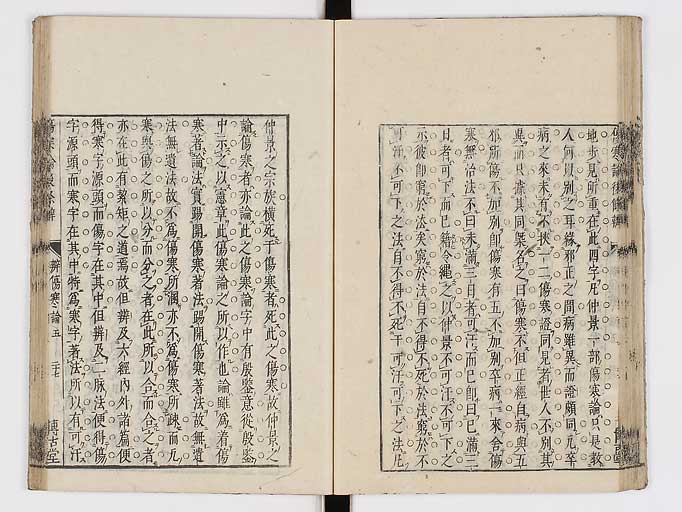 傷寒論後條辨
地步見所重在此四字凡仲景一部傷寒論只是教
人何以別之耳緣邪正之間病雖異而證頗同凡卒
病之來未有不挾一二傷寒證同見者世人不別其
異而只據其同槩名之曰傷寒不但正經自病與五
邪所傷不加別卽傷寒有五不加別卒病一來舍傷
寒無治法不曰未滿三日者可汗而已卽曰已滿三
日者可下而已籍令繼之以仲景不可汗不可下之
示彼卽窮於法矣窮於法自不得不死於法窮於不
可汗不可下之法自不得不死于可汗可下之法凡
仲景之宗族橫死于傷寒者死此之傷寒故仲景之
論傷寒者亦論此之傷寒論字中有殷鑒意從殷鑒
中示之以憲章此傷寒論之所以作也論雖爲着傷
寒著論法實踢開傷寒著法踢開傷寒著法故無遺
法無遺法故不爲傷寒所溷亦不爲傷寒所疎而凡
寒與傷之所以分而分之者在此所以合而合之者
亦在此有絜矩之道焉故但辨及六經內外諸篇便
得寒字源頭而傷字在其中但辨及二脉法便得傷
字源頭而寒字在其中特爲寒字著法所以有可汗
辨傷寒論五 二七
式古堂